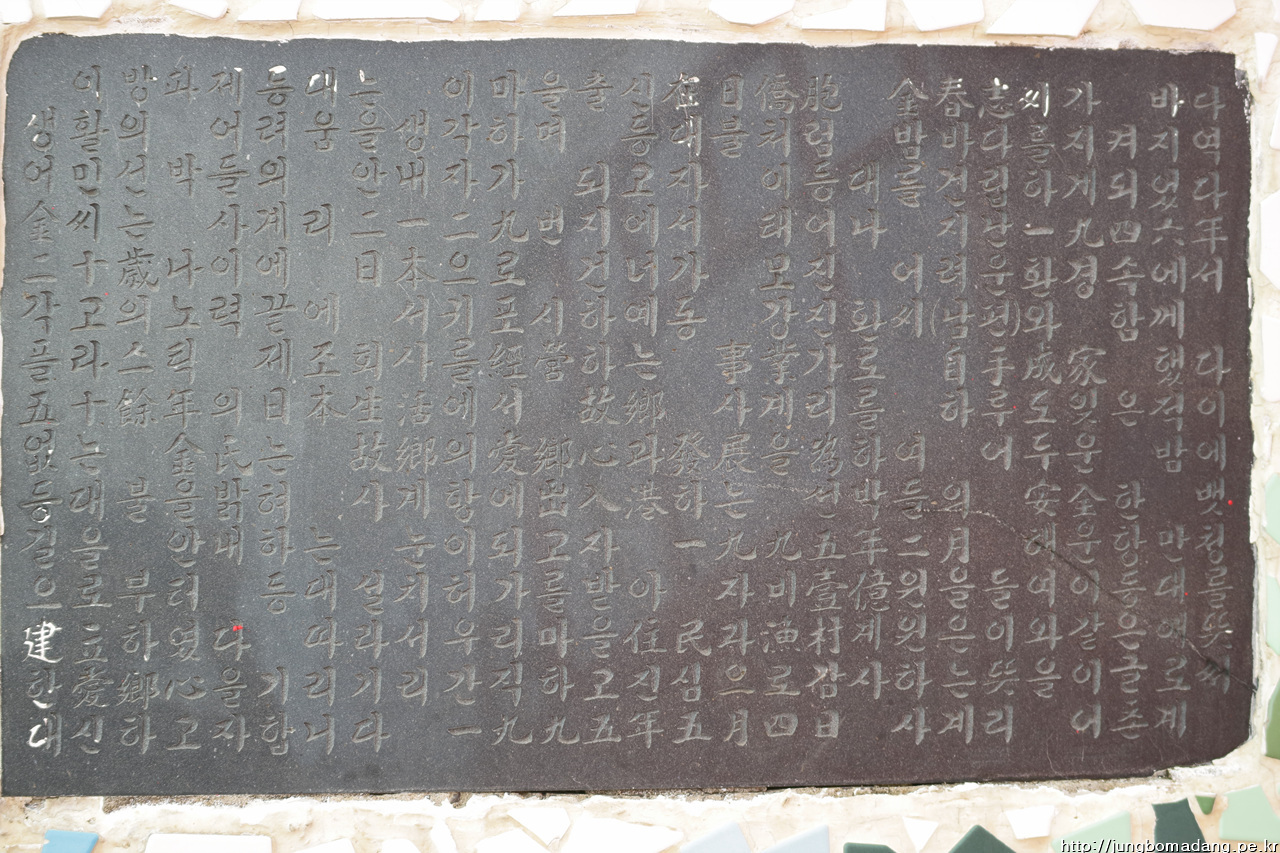 이 방파제등대는 이마을출신 在日僑胞 金春志씨가 바다
생활의 어려움을 생각하며 등대불처럼 밤바다를 지켜 지역
어민선박들의 안내자가 되고자 이등대를 건립하게되었다
金씨는 사계리 二一二九번지에서 태어나 지난 一九四六年
二十歲나이에 日本으로 건너가 모진 어려운환경속에서
각고의노력끝에 서귀포시하예동 강진환씨(남편)와 함께
플라스틱 제조회사를 經營하는 事業가로 自手成家 했다
五十餘年의日本生活에서 故鄕 사계리를 하루도잊은적이
없는 金氏는 故鄕의愛鄕心과發展을 為하여 어두운 밤에
등대불을밝혀 사계항에 出入港하는 선박들의 安全한 뱃
길을 안내하는 눈이되고자 一九九五年二月 해운항만청
으로부터 등대설치허가를받아 자비壹億원을들여이등대를
建立하였다 따라서우리마을住民과漁村계원은이와같은예뜻
한愛鄕心을기리기 간직하고진섬으로감사하는뜻을이글로써
대신하고자합니다 一九九五年五月四日 사계리어촌계
http://jungbomadang.pe.kr